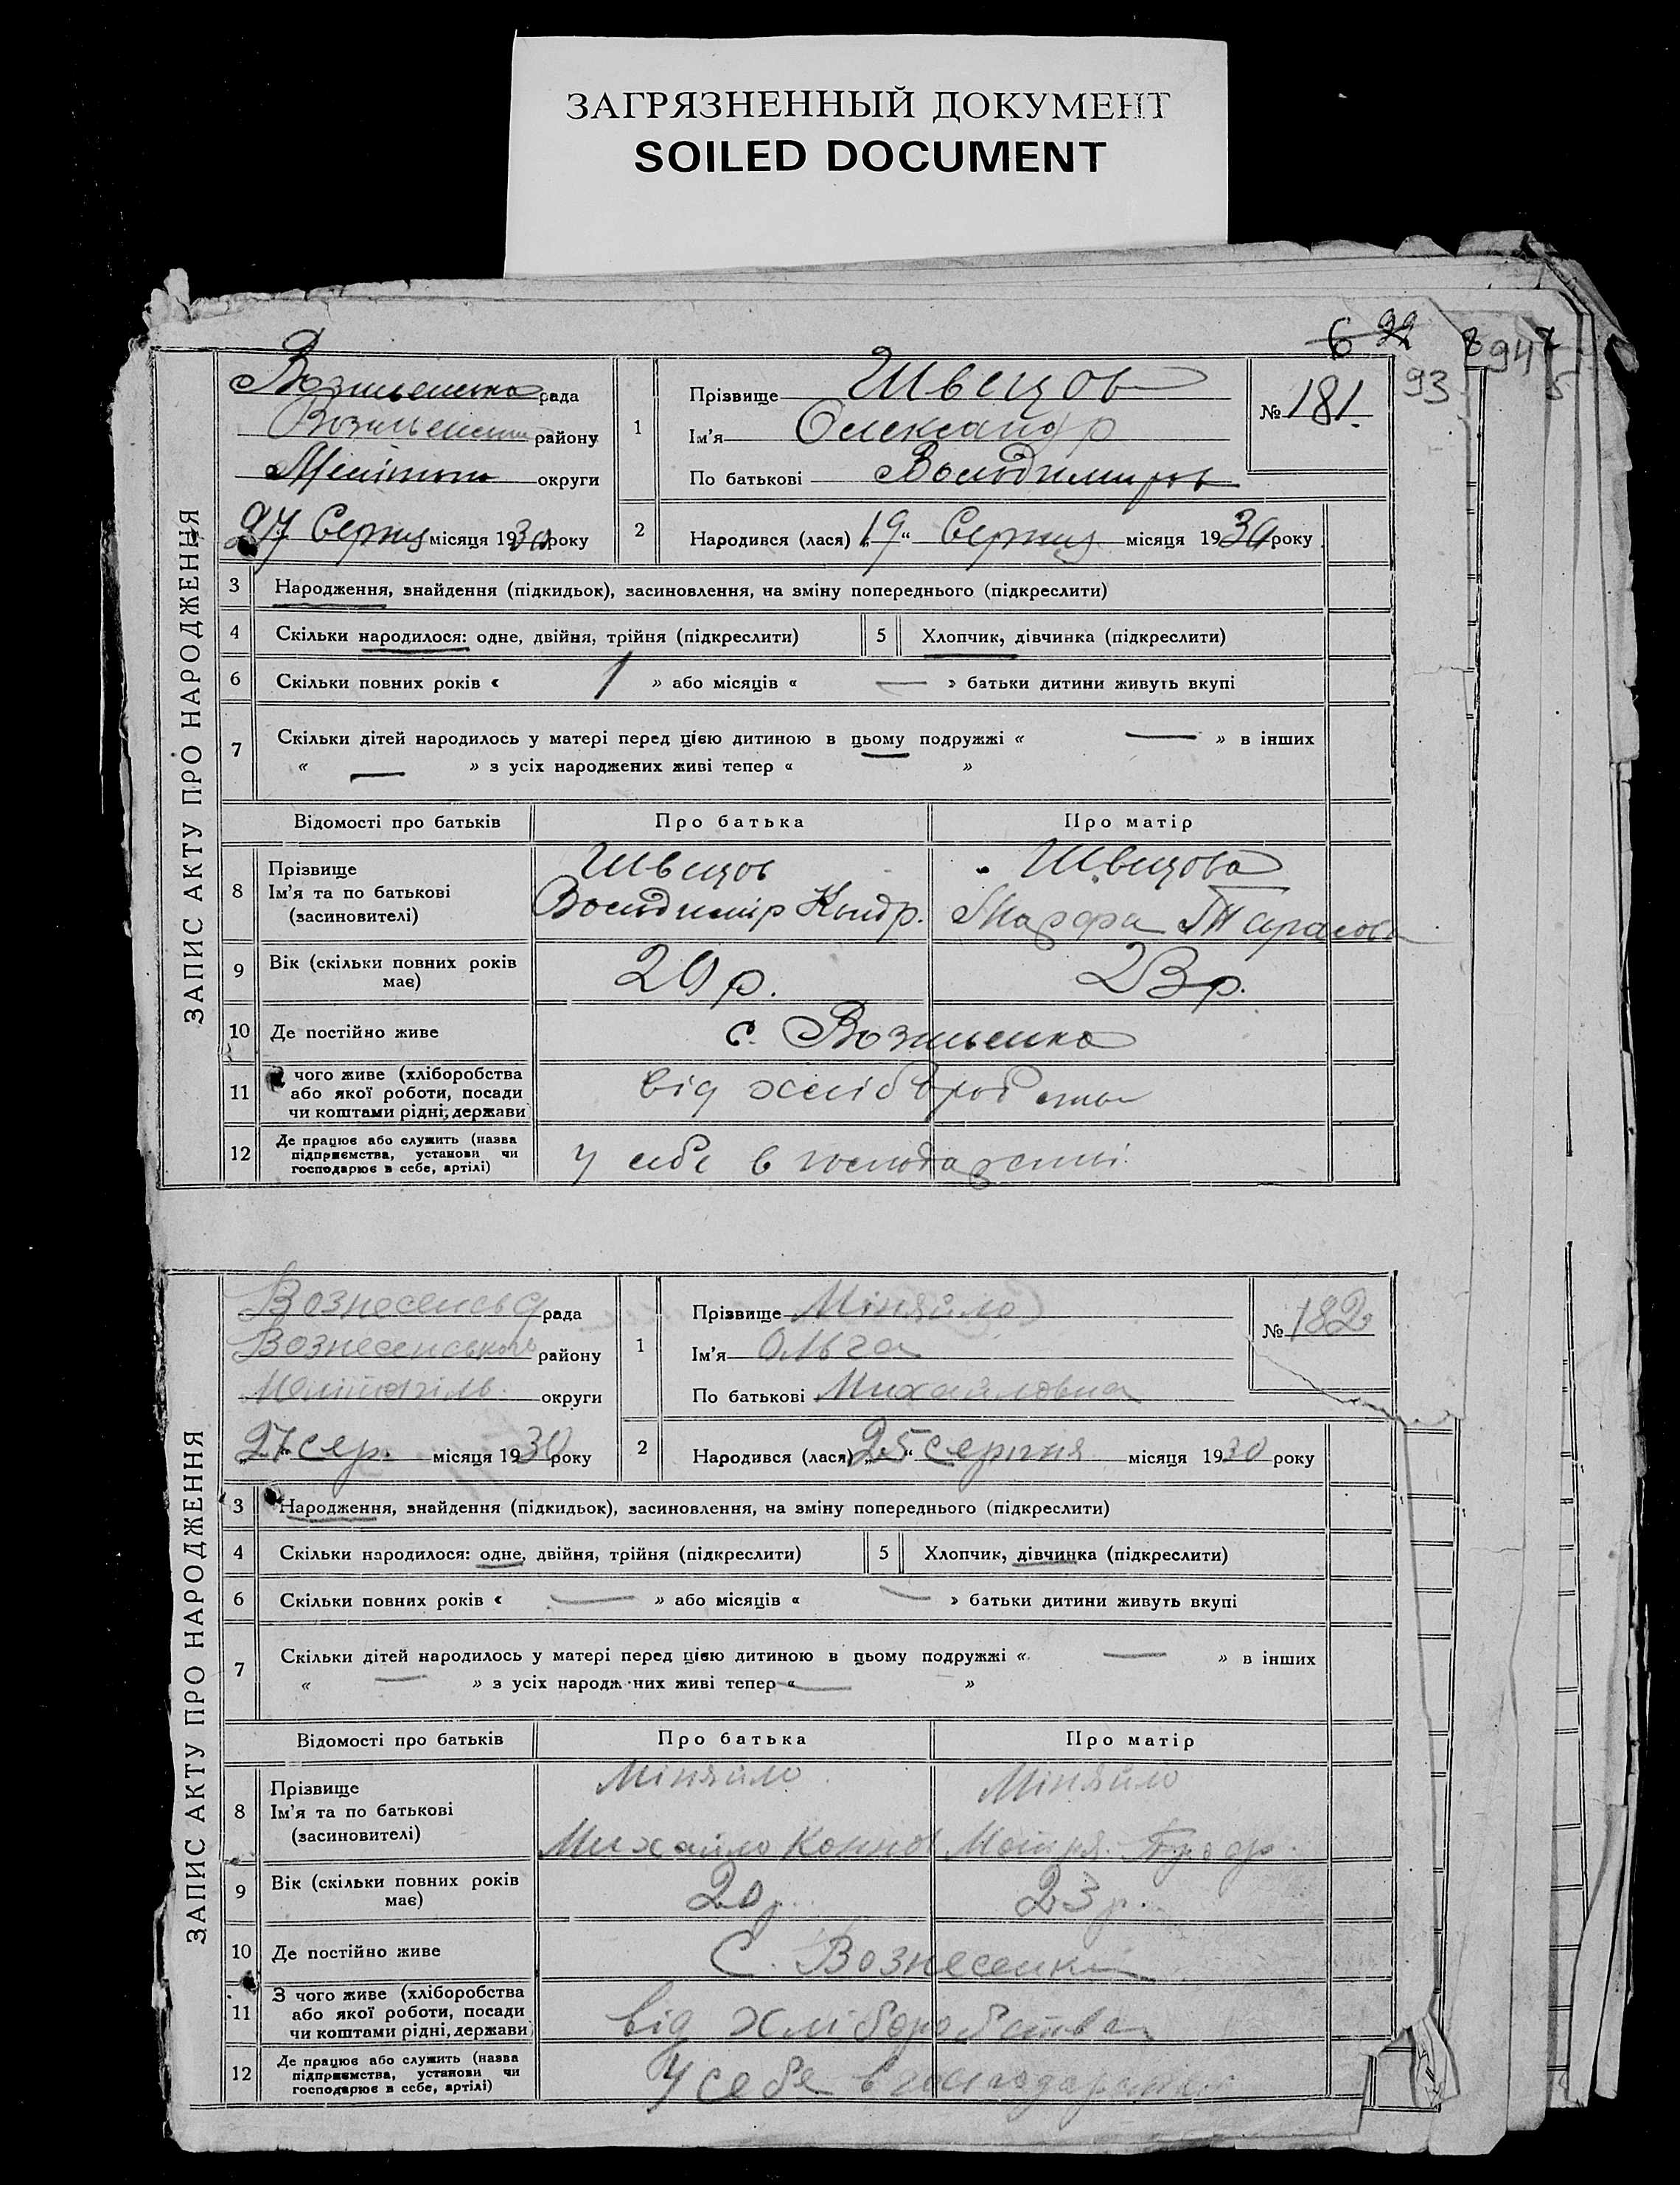 ЗАГРЯЗНЕННЫЙ ДОКУМЕНТ
SOILED DOCUMENT
6 92 8 94 7
93 5
ЗАПИС АКТУ ПРО НАРОДЖЕННЯ
рада
району
округи
27 Серпня місяця 1930 року
1
Прізвище Швецов
Ім'я Олександр
По батькові Володимиров
№ 181.
2
Народився (лася) „19“ Серпня місяця 1930 року
3 Народження, знайдення (підкидьок), засиновлення, на зміну попереднього (підкреслити)
4 Скільки народилося: одне, двійня, трійня (підкреслити) 5 Хлопчик, дівчинка (підкреслити)
6 Скільки повних років « 1 » або місяців « — » батьки дитини живуть вкупі
7 Скільки дітей народилось у матері перед цією дитиною в цьому подружжі « — » в інших
« — » з усіх народжених живі тепер « »
Відомості про батьків Про батька Про матір
8 Прізвище
Ім'я та по батькові
(засновителі)
Швецов
Володимір Кондр.
Швецова
Марфа Тарасова
9 Вік (скільки повних років
має)
20 р. 23 р.
10 Де постійно живе с. Вознесенка
11 чого живе (хліборобства
або якої роботи, посади
чи коштами рідні, держави
від хліборобства
12 Де працює або служить (назва
підприємства, установи чи
господарює в себе, артілі)
у себе в господарстві
ЗАПИС АКТУ ПРО НАРОДЖЕННЯ
Вознесенська рада
Вознесенського району
Мелітопіль округи
„27“ сер. місяця 1930 року
1
Прізвище Міняйло
Ім'я Ольга
По батькові Михайловна
№ 182
2
Народився (лася) „25“ серпня місяця 1930 року
3 Народження, знайдення (підкидьок), засиновлення, на зміну попереднього (підкреслити)
4 Скільки народилося: одне, двійня, трійня (підкреслити) 5 Хлопчик, дівчинка (підкреслити)
6 Скільки повних років « — » або місяців « — » батьки дитини живуть вкупі
7 Скільки дітей народилось у матері перед цією дитиною в цьому подружжі « — » в інших
« — » з усіх народж них живі тепер « — »
Відомості про батьків Про батька Про матір
8 Прізвище
Ім'я та по батькові
(засиновителі)
Міняйло
Михайло
Міняйло
9 Вік (скільки повних років
має)
20 р. 23 р.
10 Де постійно живе С. Вознесенка
11 З чого живе (хліборобства
або якої роботи, посади
чи коштами рідні, держави)
від хліборобства
12 Де працює або служить (назва
підприємства, установи чи
господарює в себе, артілі)
У себе в господарстві